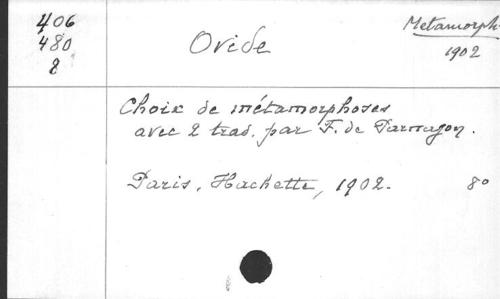 406
480
8
Ovide
Metamorph.
1902
Choix de métamorphoses
avec 2 trad. par F. de Parnajon.
Paris, Hachette, 1902. 8°